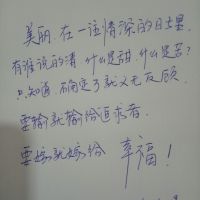 美丽.在一往情深的日子里.
有谁说的清.什么是甜.什么是苦?
只知道.确定了就义无反顾.
要输就输给追求.
要嫁就嫁给 幸福!